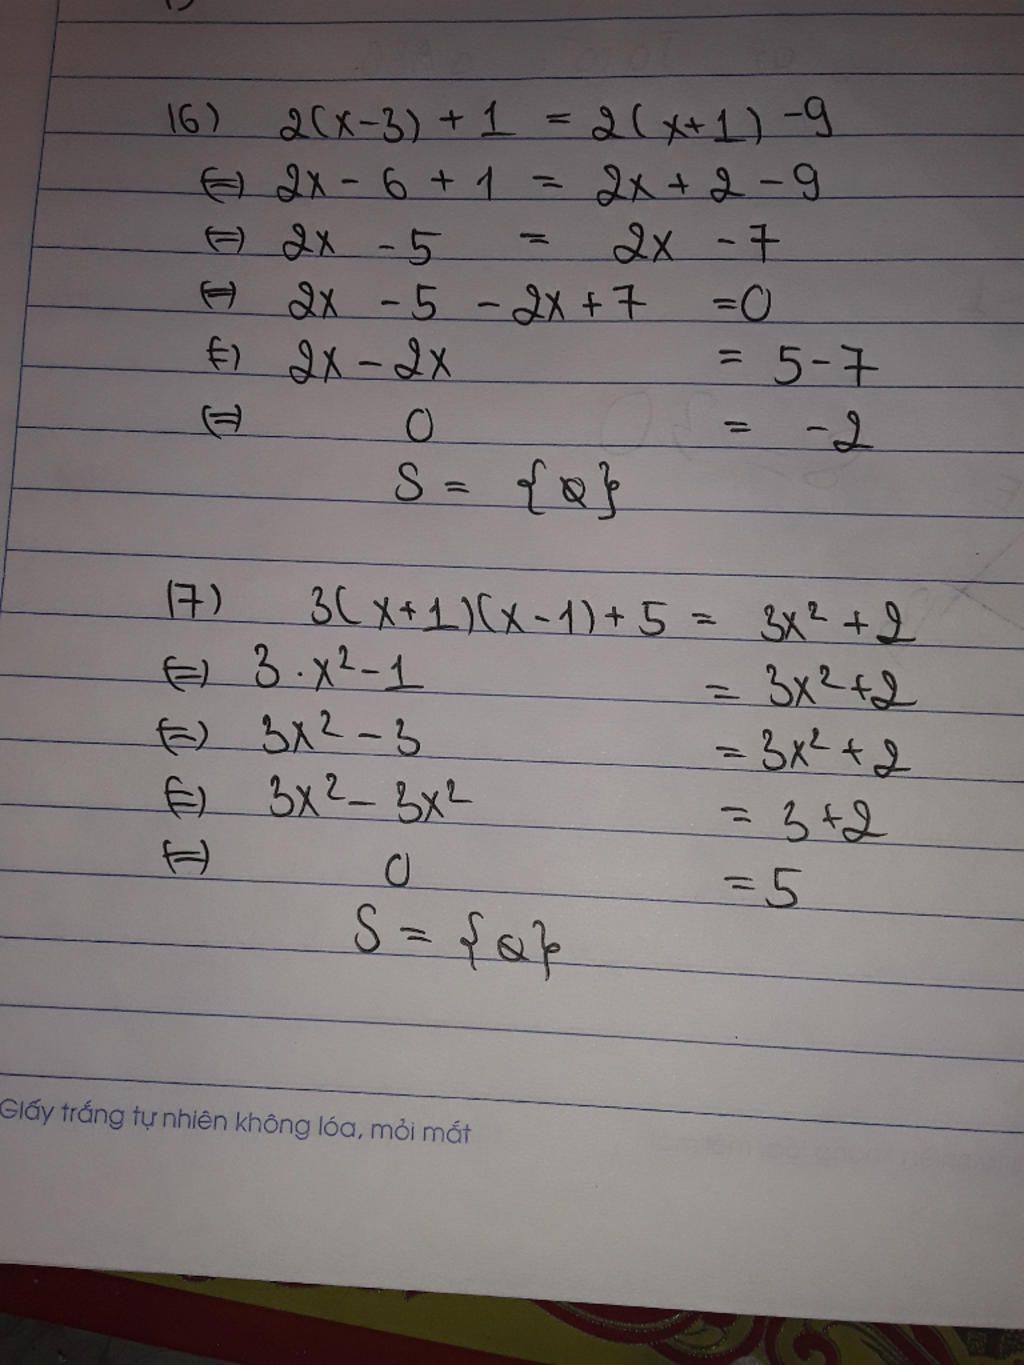 16) 2(x-3) + 1 = 2(x+1) -9
(=) 2x - 6 + 1 = 2x + 2 - 9
(=) 2x - 5 = 2x - 7
(=) 2x - 5 - 2x + 7 = 0
(=) 2x - 2x = 5 - 7
(=) 0 = -2
S = {Ø}
17) 3(x+1)(x-1) + 5 = 3x² + 2
(=) 3 . x² - 1 = 3x² + 2
(=) 3x² - 3 = 3x² + 2
(=) 3x² - 3x² = 3 + 2
(=) 0 = 5
S = {Ø}
Giấy trắng tự nhiên không lóa, mỏi mắt